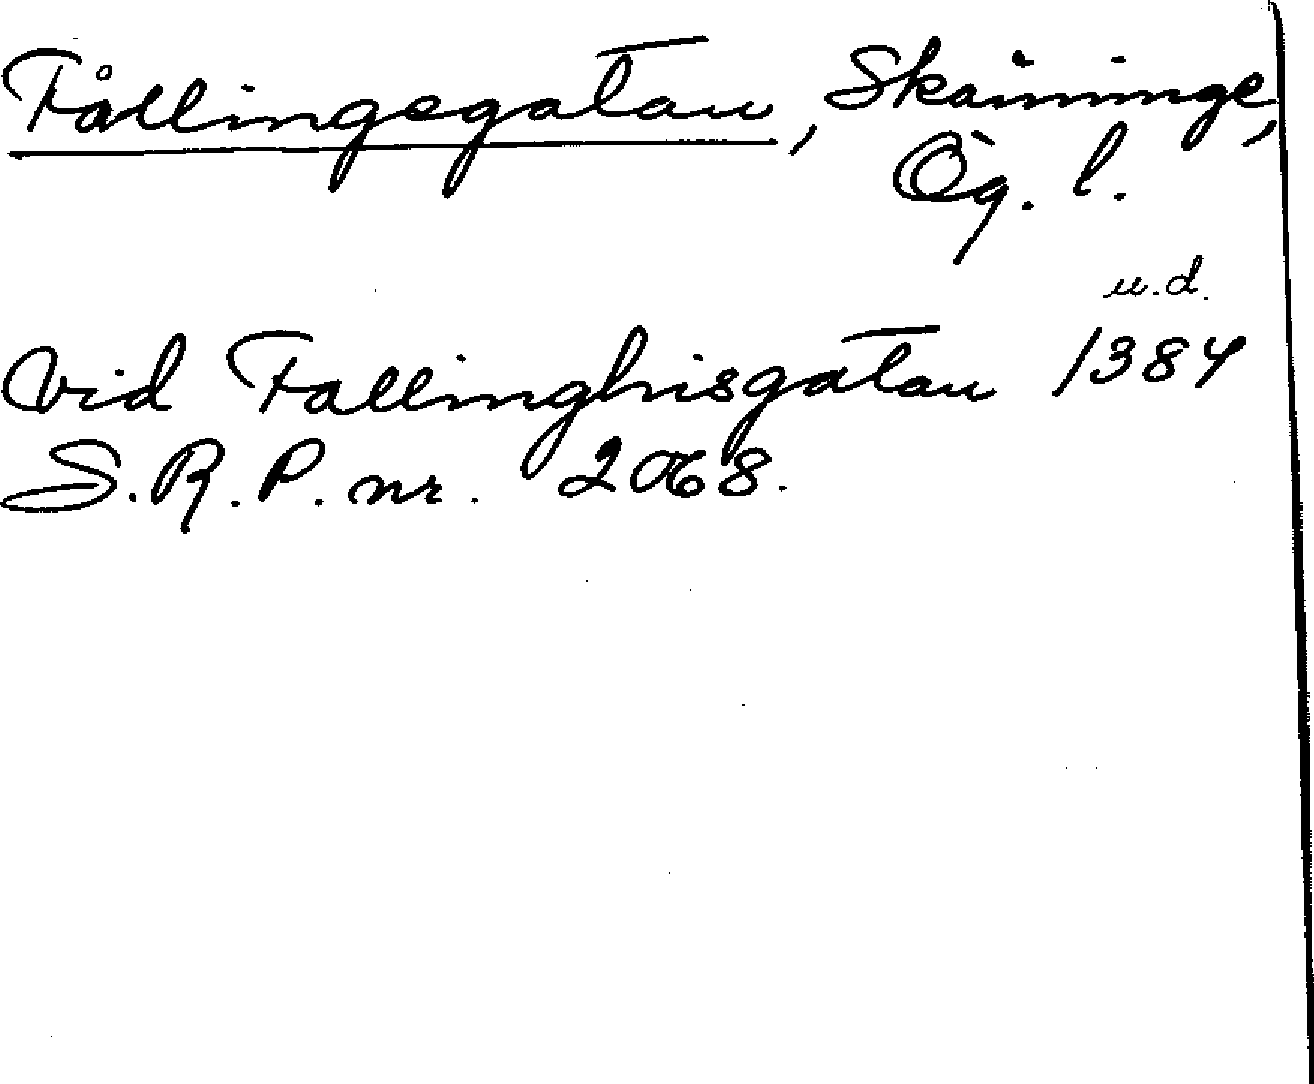 Fållingegatan, Skänninge,
Ög. l.
u.d.
Vid Fallinghisgatan 1384
S.R.P. nr. 2068.